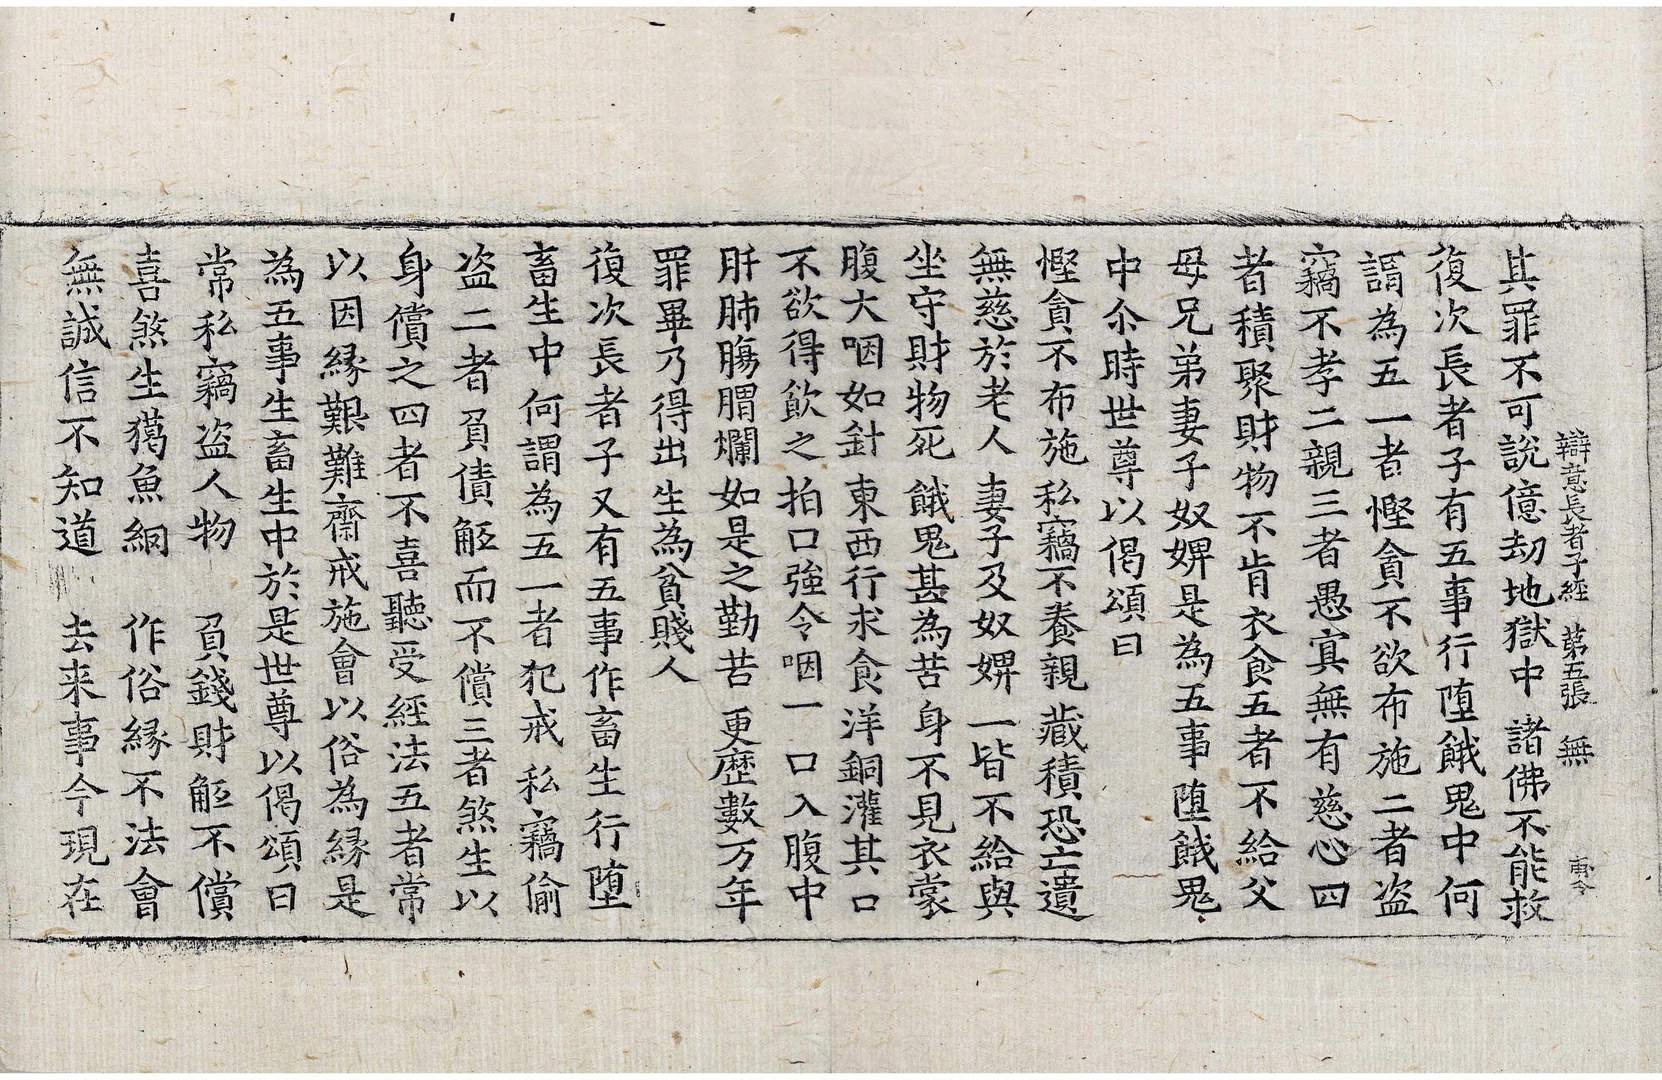 辯意長者子經　第五張　無
其罪不可說億劫地獄中　諸佛不能救
復次長者子有五事行堕餓鬼中何
謂為五一者慳貪不欲布施二者盗
竊不孝二親三者愚冥無有慈心四
者積聚財物不肯衣食五者不給父
母兄弟妻子奴婢是為五事堕餓鬼
中尒時世尊以偈頌曰
慳貪不布施　私竊不養親　藏積恐亡遺
無慈於老人　妻子及奴婢　一皆不給與
坐守財物死　餓鬼甚為苦　身不見衣裳
腹大咽如針　東西行求食　洋銅灌其口
不欲得飲之　拍口強令咽　一口入腹中
肝肺腸胃爛　如是之勤苦　更歷數万年
罪畢乃得出　生為貧賤人
復次長者子又有五事作畜生行堕
畜生中何謂為五一者犯戒私竊偷
盗二者負債觝而不償三者煞生以
身償之四者不喜聽受經法五者常
以因縁艱難齋戒施會以俗為縁是
為五事生畜生中於是世尊以偈頌曰
常私竊盗人物　負錢財觝不償
喜煞生獦魚網　作俗縁不法會
無誠信不知道　去来事今現在